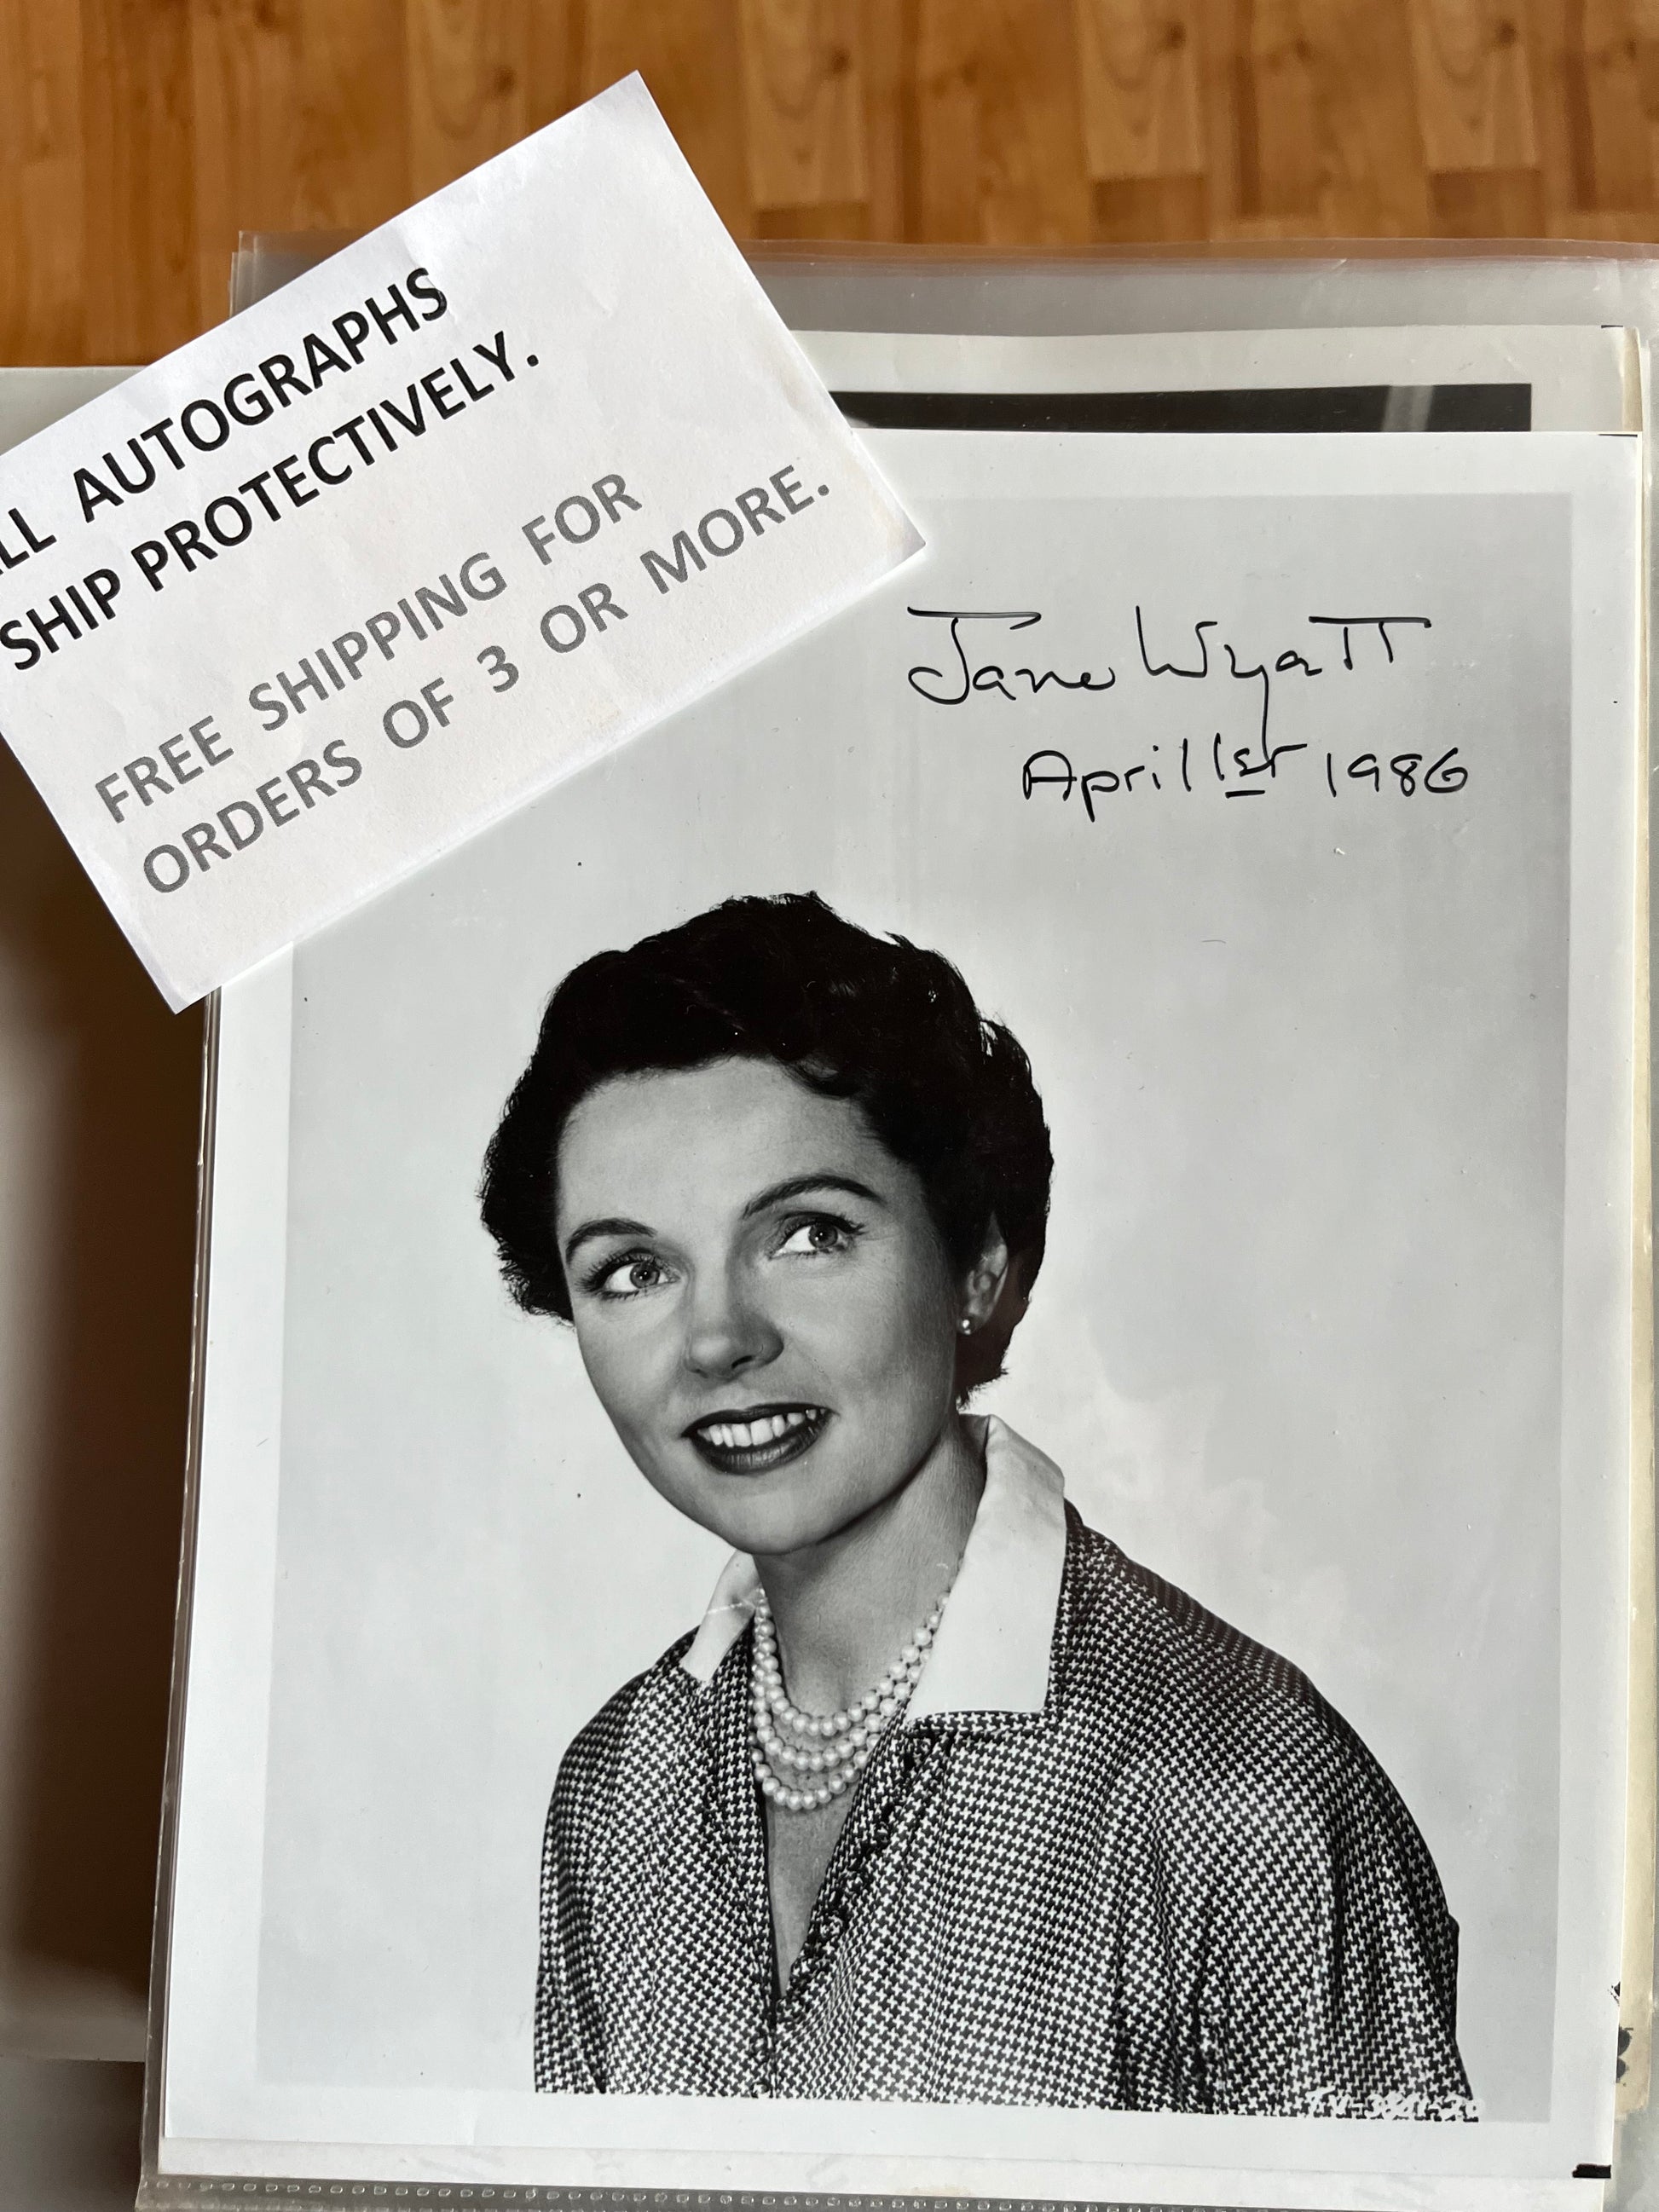 AUTOGRAPHS
SHIP PROTECTIVELY.
FREE SHIPPING FOR
ORDERS OF 3 OR MORE.
Jane Wyatt
April 1st 1986